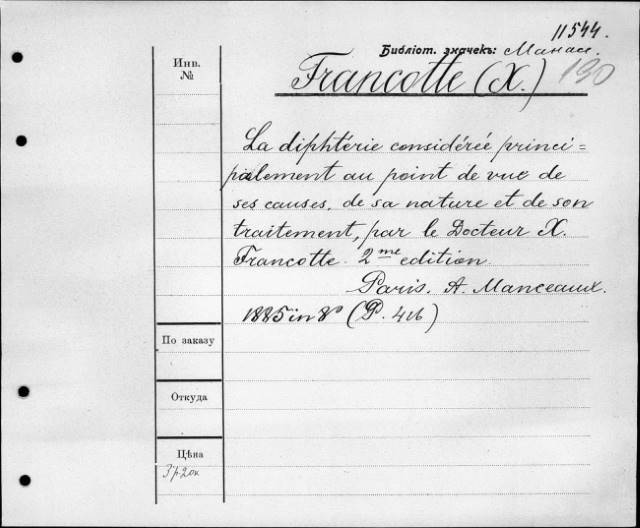 11544.
Библіот. значекъ: Манас.
Инв.
№
Francotte (X.) 130
La diphtérie considérée princi=
palement au point de vue de
ses causes, de sa nature et de son
traitement, par le Docteur X.
Francotte. 2me edition.
Paris. A. Manceaux.
1885 in 8º (P. 416)
По заказу
Откуда
Цѣна
3 р. 20 к